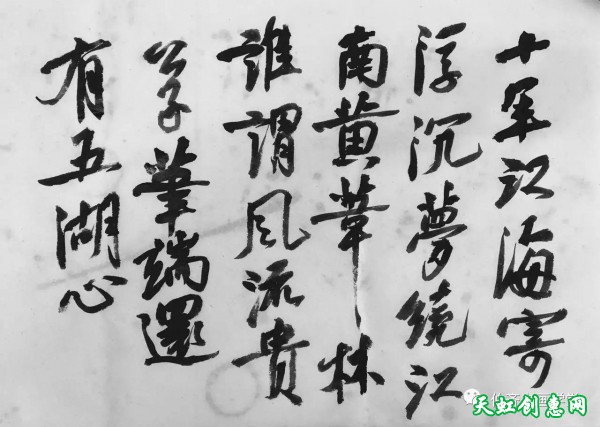 十年江海寄
浮沉夢繞江
南黄葦林
誰謂風流貴
公子筆端還
有五湖心
天虹创惠网